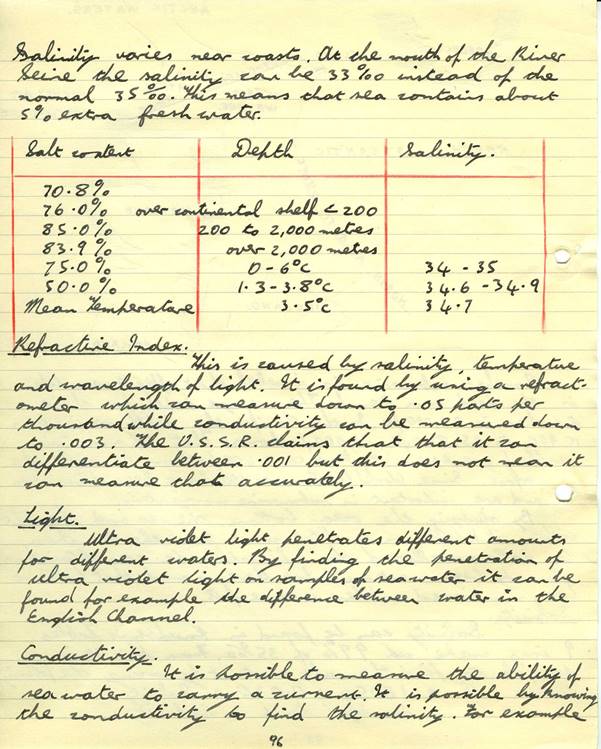 Salinity varies near coasts. At the mouth of the River
Seine the salinity can be 33‰ instead of the
normal 35‰. This means that sea contains about
5% extra fresh water.
Salt content Depth Salinity.
70.8%
76.0% over continental shelf < 200
85.0% 200 to 2,000 metres
83.9% over 2,000 metres
75.0% 0 - 6°C 34 - 35
50.0% 1.3 - 3.8°C 34.6 - 34.9
Mean Temperature 3.5°C 34.7
Refractive Index.
This is caused by salinity, temperature
and wavelength of light. It is found by using a refract-
ometer which can measure down to .05 parts per
thousand while conductivity can be measured down
to .003. The U.S.S.R. claims that that it can
differentiate between .001 but this does not mean it
can measure that accurately.
Light.
Ultra violet light penetrates different amounts
for different waters. By finding the penetration of
ultra violet light on samples of sea water it can be
found for example the difference between water in the
English Channel.
Conductivity.
It is possible to measure the ability of
sea water to carry a current. It is possible by knowing
the conductivity to find the salinity. For example
96